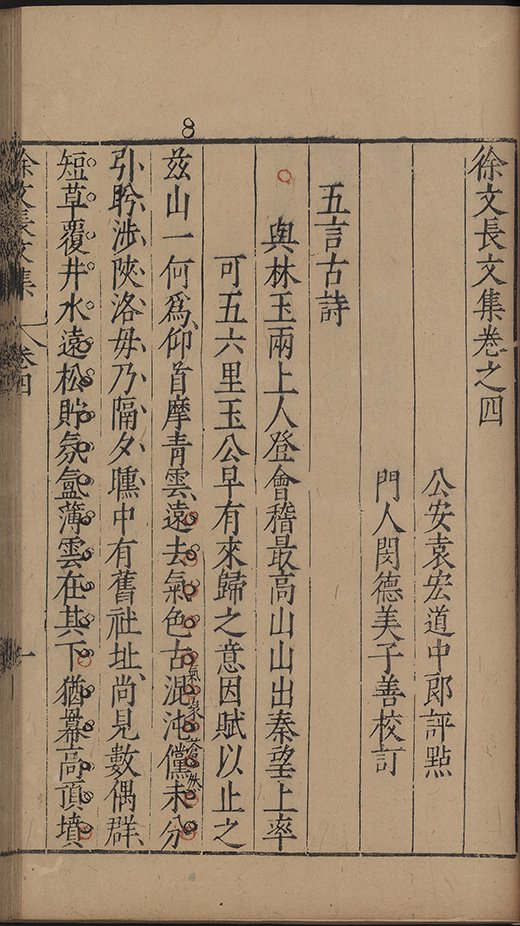 8
徐文長文集卷之四
公安袁宏道中郎評點
門人閔德美子善校訂
五言古詩
與林玉兩上人登會稽最高山山出秦望上率
可五六里玉公早有來歸之意因賦以止之
茲山一何爲仰首摩青雲遠去氣色古混沌儻未分
氣象蒼然
引盻涉陝洛毋乃隔夕曛中有舊社址尚見數偶群
短草覆井水遠松貯氛氳薄雲在其下猶冪高頂墳
徐文長文集 卷四 一